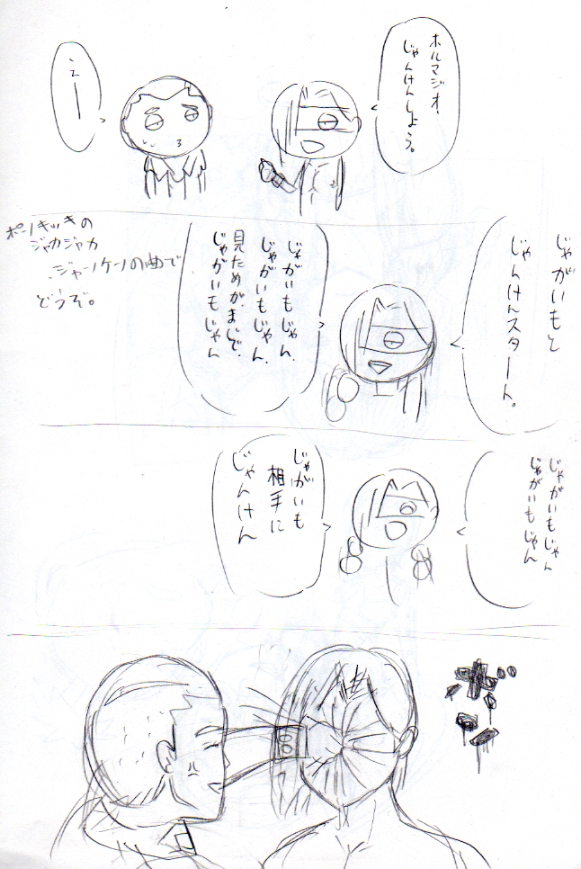 ホルマジオ、
じゃんけんしよう。
えー
じゃがいもと
じゃんけんスタート。
じゃがいもじゃん、
じゃがいもじゃん、
見ためがまじで、
じゃがいもじゃん
ポンキッキの
ジャカジャカ
ジャンケンの曲で
どうぞ。
じゃがいもじゃん
じゃがいもじゃん
じゃがいも
相手に
じゃんけん